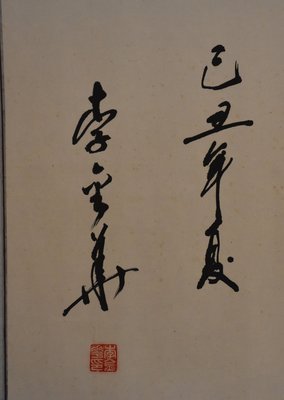 己丑年夏
李金華